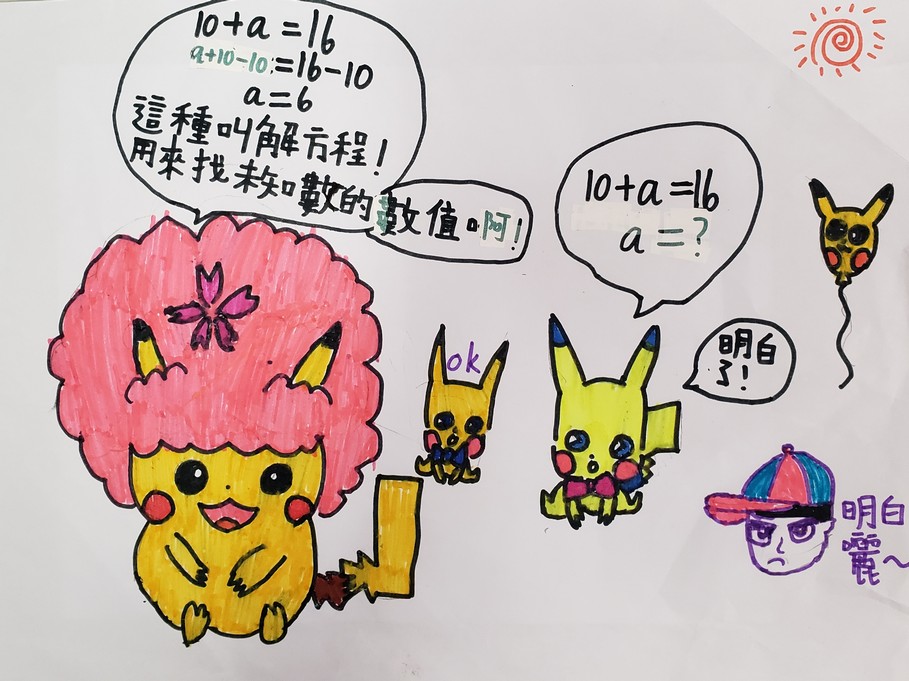 10+a=16
a+10-10=16-10
a=6
這種叫解方程！
用來找未知數的數值啊！
10+a=16
a=?
ok
明白
了！
明白
囇～